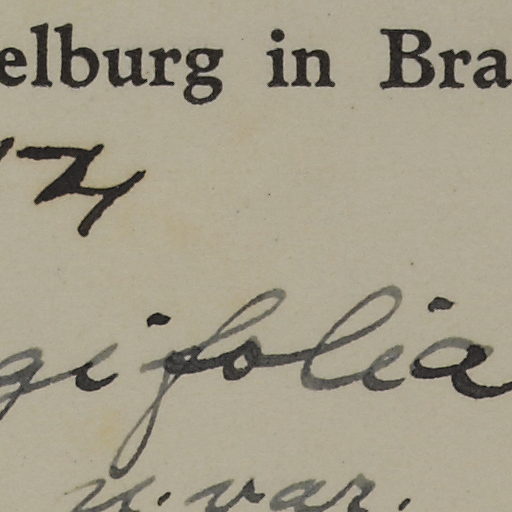 elburg in Bra
gifolia
n. var.